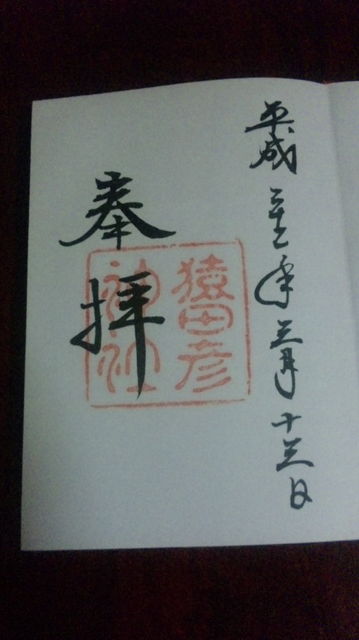 平成二十三年三月十三日
奉拝
猿田彦
神社